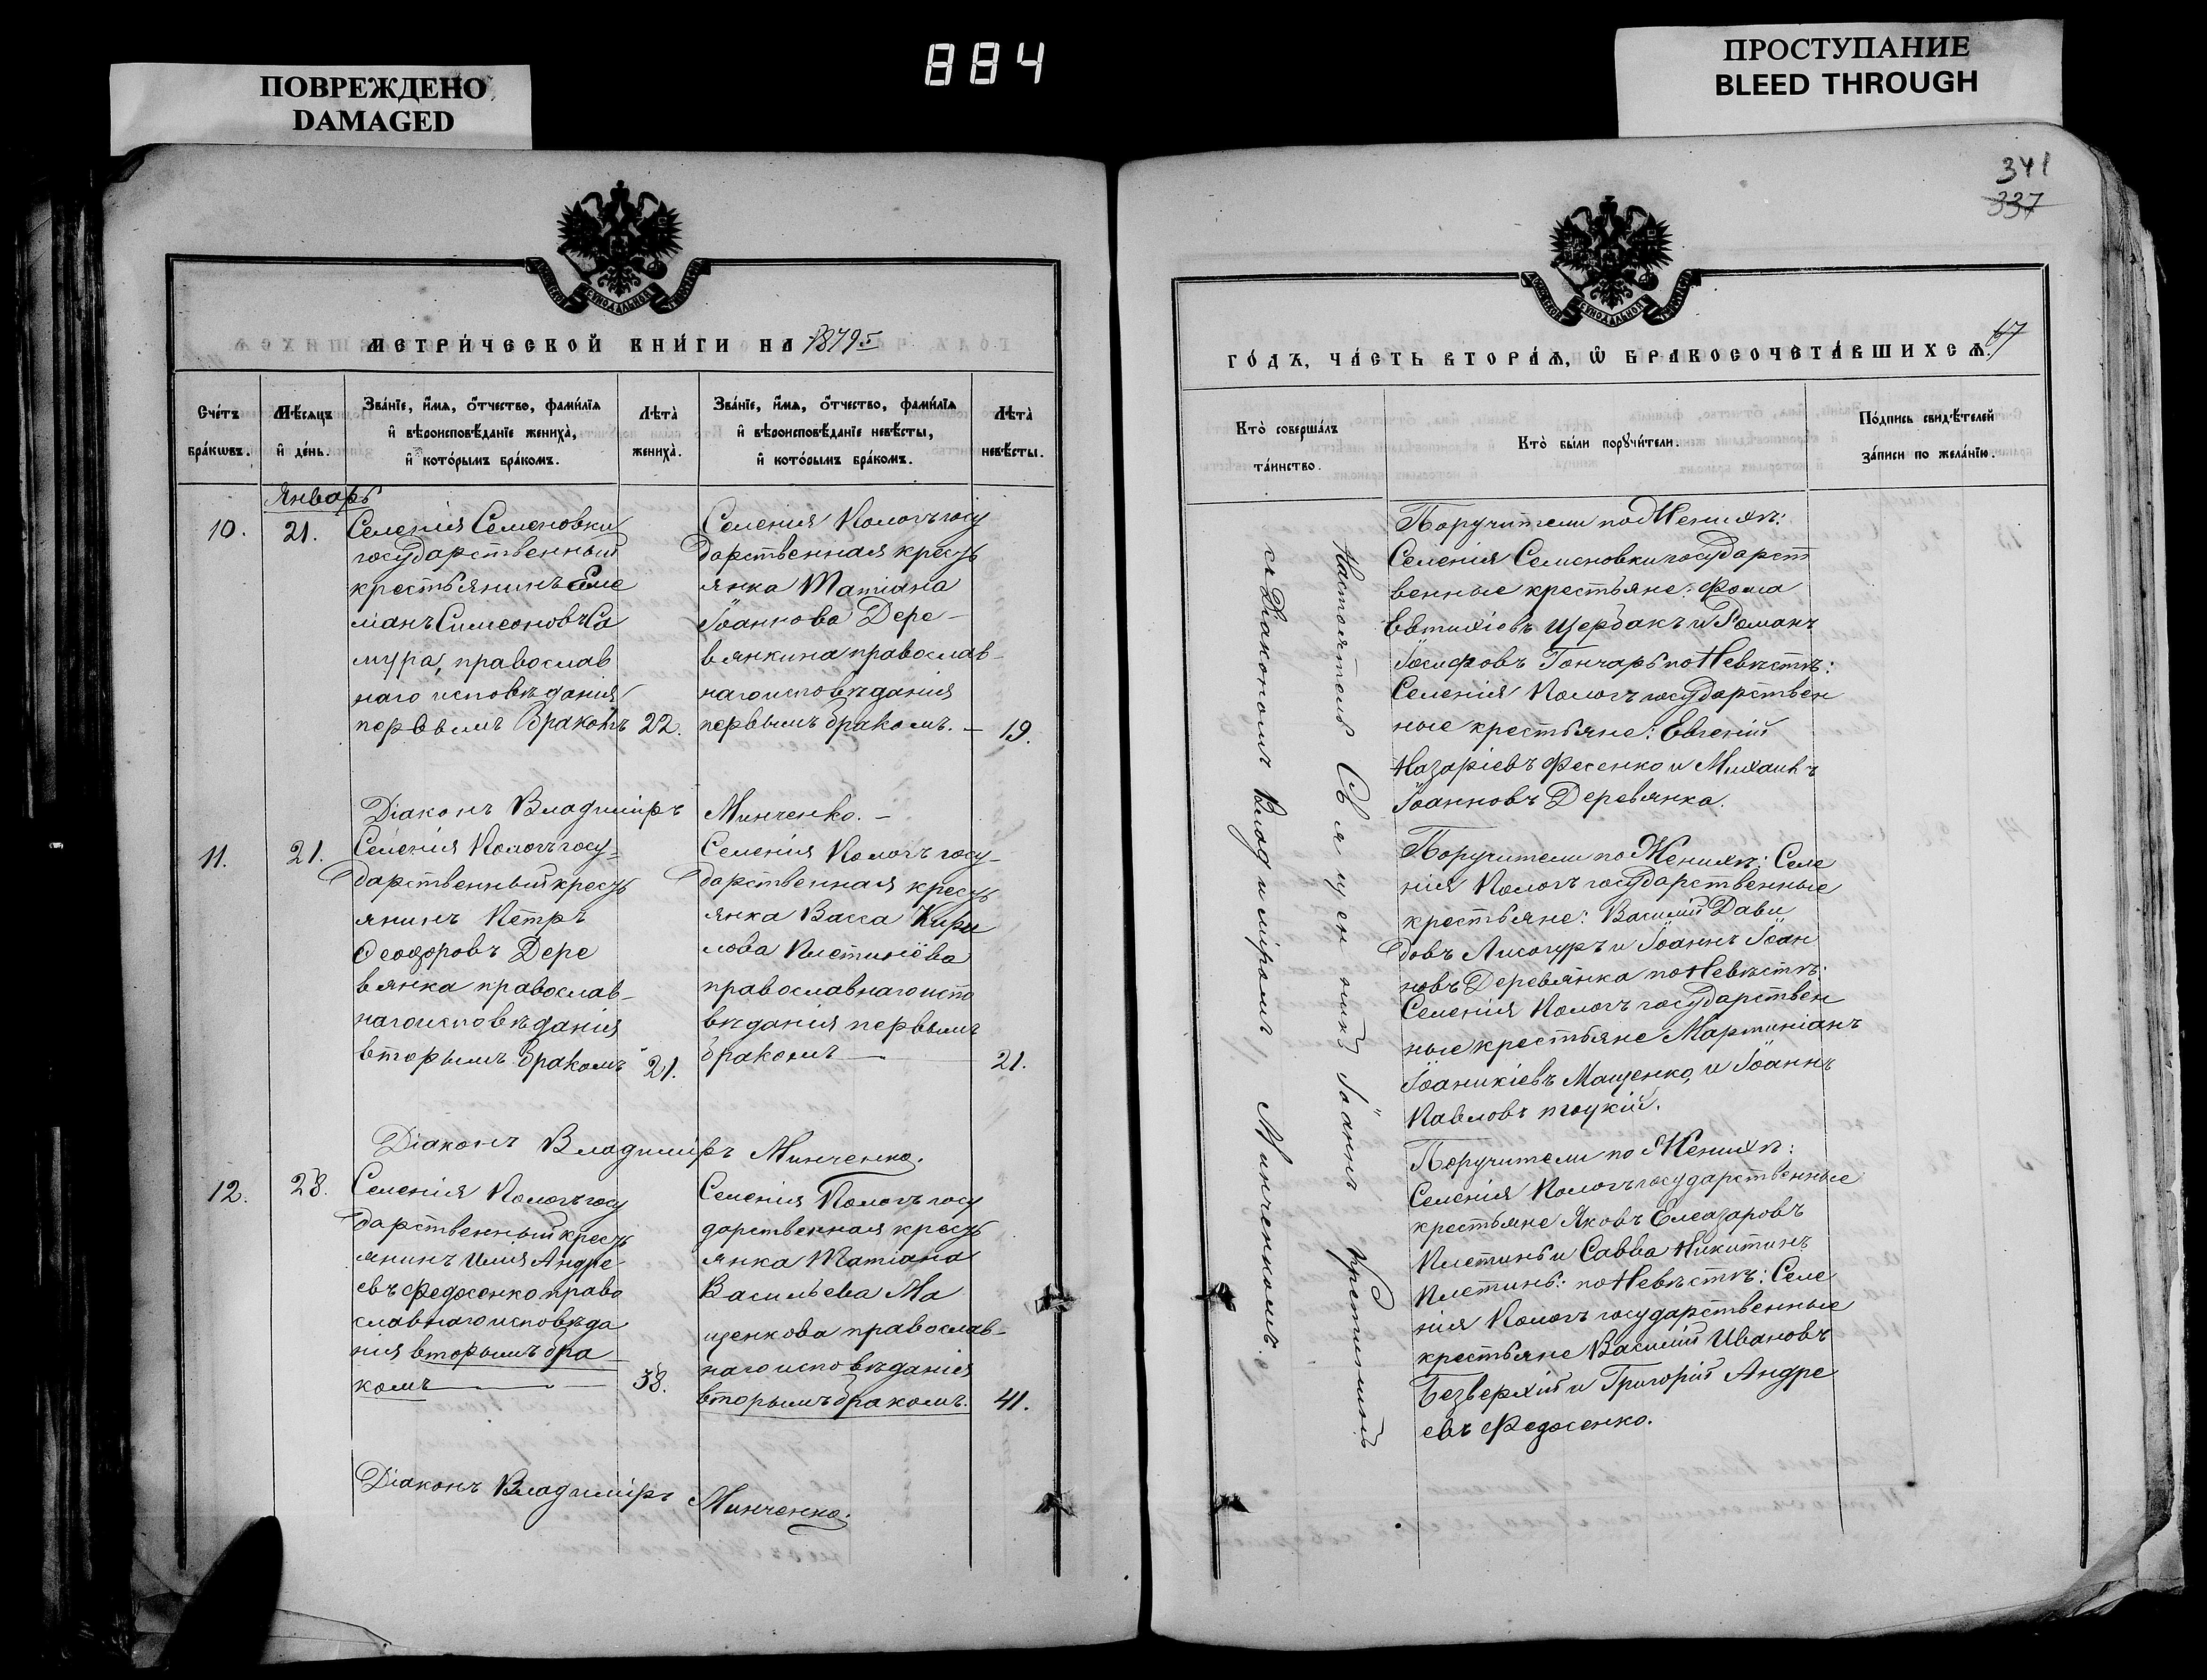 884
ПОВРЕЖДЕНО
DAMAGED
ПРОСТУПАНИЕ
BLEED THROUGH
341
337
МЕТРИ́ЧЕСКОЙ КНИ́ГИ НА 1875
Сче́тъ
бра́кωвъ.
Мѣ́сяцъ
и҆ де́нь.
Зва́нїе, и҆́мѧ, ѻ҆́тчество, фами́лїѧ
и҆ вѣроисповѣ́данїе жениха̀,
и҆ кото́рымъ бра́комъ.
Лѣта̀
жениха̀.
Зва́нїе, и҆́мѧ, ѻ҆́тчество, фами́лїѧ
и҆ вѣроисповѣ́данїе невѣ́сты,
и҆ кото́рымъ бра́комъ.
Лѣта̀
невѣ́сты.
Январь
10.
21.
Селенія Семеновки
государственный
крестьянинъ Еме
ліанъ Симеоновъ Са
мура, православ
наго исповѣданія
первымъ бракомъ
22.
Селенія Пологъ госу
дарственная кресть
янка Татіана
Іоаннова Дере-
вянкина православ-
наго исповѣданія
первымъ бракомъ. -
19.
Діаконъ Владиміръ Минченко. -
11.
21.
Селенія Пологъ госу-
дарственный кресть
янинъ Петръ
Ѳеодоровъ Дере
вянка православ-
наго исповѣданія
вторымъ бракомъ
21.
Селенія Пологъ госу-
дарственная кресть
янка Васса Кири
лова Плетинёва
православнаго испо
вѣданія первымъ
бракомъ
21.
Діаконъ Владиміръ Минченко.
12.
28.
Селенія Пологъ госу
дарственный кресть
янинъ Илія Андре
евъ Федосенко право
славнаго исповѣда
нія вторымъ бра
комъ
38.
Селенія Пологъ госу
дарственная кресть
янка Татіана
Васильева Ма
щенкова православ-
наго исповѣданія
вторымъ бракомъ.
41.
Діаконъ Владиміръ Минченко.
67
ГО́ДЪ, ЧА́СТЬ ВТОРА́Ѧ, Ѽ БРАКОСОЧЕТА́ВШИХСѦ.
Кто̀ соверша́лъ
та́инство.
Кто̀ бы́ли порꙋчи́тели.
По́дпись свидѣ́телей
за́писи по жела́нїю.
Настоятель Священникъ Іоаннъ Крестинскій
съ Діакономъ Владиміромъ Минченкомъ.
Поручители по Женихѣ:
Селенія Семеновки государст
венные крестьяне: Фома
Евтихіевъ Щербакъ и Романъ
Іосифовъ Гончаръ по Невѣстѣ:
Селенія Пологъ государствен
ные крестьяне: Евгеній
Назаріевъ Фесенко и Михаилъ
Іоанновъ Деревянка.
Поручители по Женихѣ: Селе
нія Пологъ государственные
крестьяне: Василій Дави
довъ Лисогуръ и Іоаннъ Іоан
новъ Деревянка по Невѣстѣ:
Селенія Пологъ государствен
ные крестьяне Мартиніанъ
Іоаникіевъ Мащенко, и Іоаннъ
Павловъ
Поручители по Женихѣ:
Селенія Пологъ государственные
крестьяне Яковъ Елеазаровъ
Плетинь и Савва Никитинъ
Плетинь: по Невѣстѣ: Селе
нія Пологъ государственные
крестьяне Василій Ивановъ
Безверхій и Григорій Андре
евъ Федосенко.